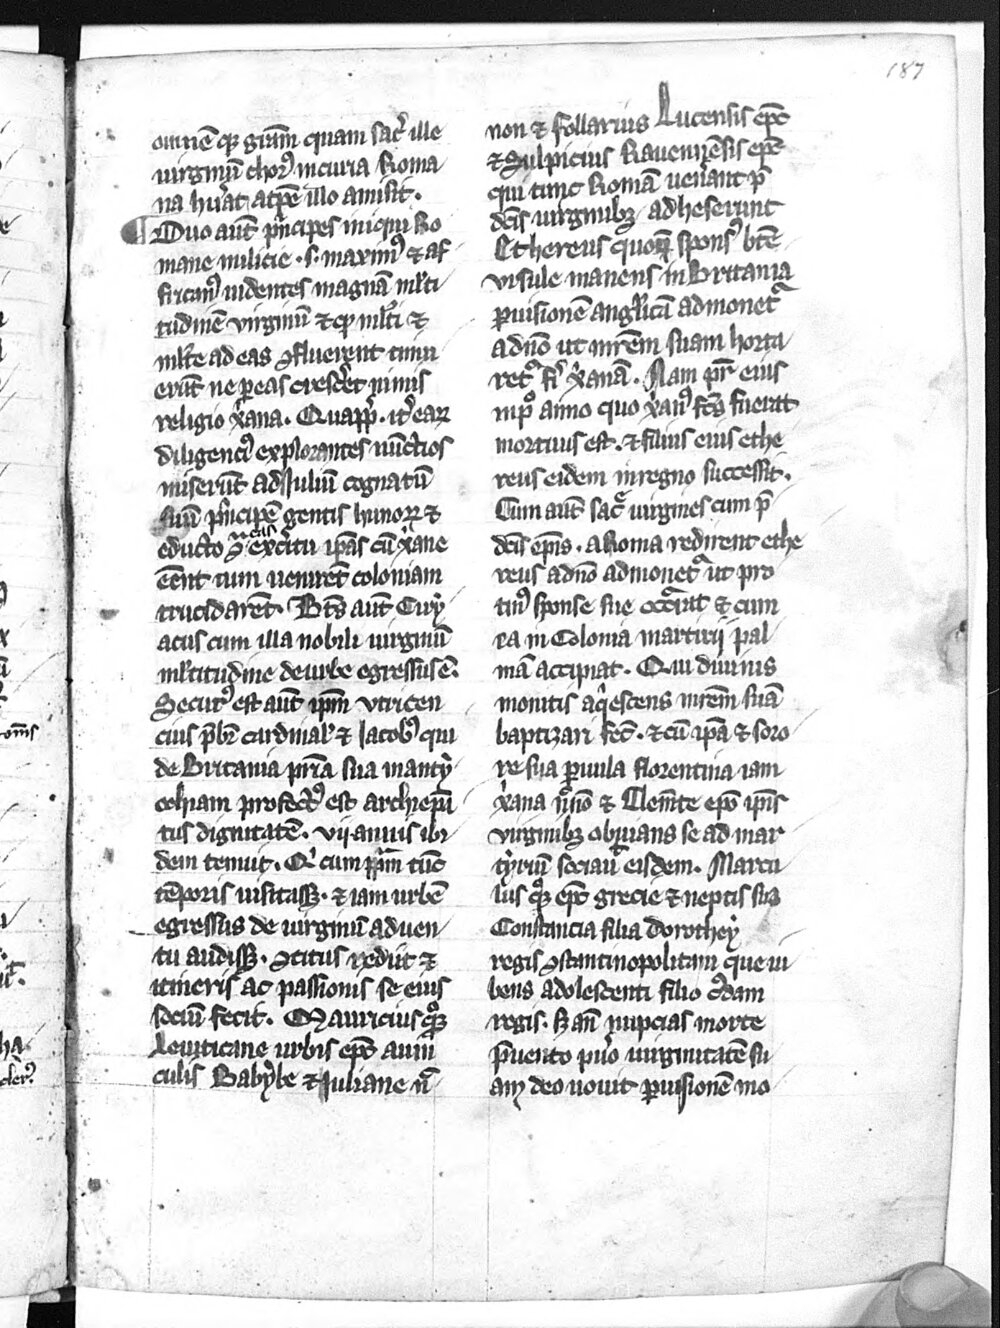 187
omnē qꝫ grām quam sacͥ ille
virginū chorꝰ in curia Roma
na hu͛at at p̄e illo amisit.
¶ Duo aūt pͥncipes iniqui Ro
mane milicie .s. maximꝰ ⁊ af
fricanꝰ uidentes magnā ml̓ti
tudinē virginū ⁊ qͣ ml̓ti ⁊
ml̓te ad eas ꝯfluerent timu
erūt ne ꝑ eas cresc͛et nimis
religio xͥana. Quapp̄. it̓ eaꝝ
diligencͥ explorantes nūctios
miserūt ad Juliū cognatū
suū pͥncipē gentis hunoꝝ ⁊
educto ꝯͣ eas exc͛itu ip̄as cū xͥane
eēnt cum uenirēt coloniam
trucidarēt. Bt̄s aūt Cirẏ
acus cum illa nobili uirginū
ml̓titudine de urbe egressus ē.
Secutꝰ est aūt ip̄m vir cen
cius p̄br̄ cardinal̓ ⁊ Jacobꝰ qui
de Britania pr̄ia sua in antẏ
ochiam profectꝰ est archiep̄a
tus dignitatē. vij annis ibi
dem tenuit. Qͥ cum pp̄m tūc
tēporis uisitassꝫ. ⁊ iam urbē
egressus de uirginū aduen
tu audissꝫ. ꝯcitus rediit ⁊
itineris ac passionis se eius
sociū fecit. Mauricius qͦꝫ
Leuiticane urbis ep̄c auū
culis Babẏle ⁊ Juliane n̄
non ⁊ follarius Lucensis ep̄c
⁊ Sulpicius Rauennēsis ep̄c
qui tunc Romā uenant p̄
dc̄is uirginibꝫ adheserunt
Ethereus quoqꝫ sponsꝰ btē
vrsule manens in Britania
ꝑ uisionē anglicā admonetᷣ
a dn̄o ut mr̄em suam horta
retᷣ fiͥ xͥanā. Nam pr̄ eius
inpͦ anno quo xͥanꝰ fc̄s fuerat
mortuus est. ⁊ filius eius ethe
reus eidem in regno successit.
Cum aūt sacͤ uirgines cum p̄
dc̄is ep̄is. a Roma redirent ethe
reus a dn̄o admonetᷣ ut pro
tinꝰ sponse sue occͥrat ⁊ cum
ea in Colonia martirij pal
mā accipiat. Qui diuinis
monitis acqͥescens mr̄em suā
baptizari fec̄. ⁊ cū ip̄a ⁊ soro
re sua ꝑuula florentina iam
xͥana nͨnō ⁊ Clemēte ep̄o ip̄is
virginibꝫ obuians se ad mar
tẏrium sociauͥ eisdem. Marcu
lus qͦꝫ ep̄c grecie ⁊ neptis sua
Constancia filia Dorotheẏ
regis ꝯstantinopolitani que iu
beñs adolescenti filio cͥdam
regis. sꝫ añ nupcias morte
p̄uento pͥuo uirginitatē su
am deo uouit ꝑ uisionē mo